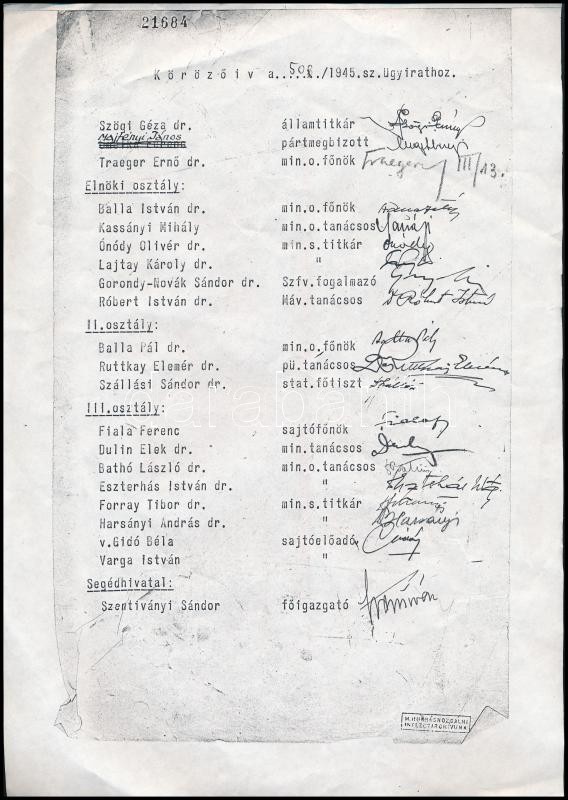 21684
Körözőív a..508./1945.sz.Ügyirathoz.
Szögi Géza dr. államtitkár
Majfényi János pártmegbizott
Traeger Ernő dr. min.o.főnök Traeger III/13.
Elnöki osztály:
Balla István dr. min.o.főnök
Kassányi Mihály min.o.tanácsos
Ónódy Olivér dr. min.s.titkár
Lajtay Károly dr. "
Gorondy-Novák Sándor dr. Szfv.fogalmazó
Róbert István dr. Máv.tanácsos Dr Róbert István
II.osztály:
Balla Pál dr. min.o.főnök
Ruttkay Elemér dr. pü.tanácsos Dr Ruttkay Elemér
Szállási Sándor dr. stat.főtiszt
III.osztály:
Fiala Ferenc sajtófőnök
Dulin Elek dr. min.tanácsos
Bathó László dr. min.o.tanácsos
Eszterhás István dr. "
Forray Tibor dr. min.s.titkár
Harsányi András dr. " Dr Harsányi
v.Gidó Béla sajtóelőadó
Varga István "
Segédhivatal:
Szentiványi Sándor főigazgató
darabanth